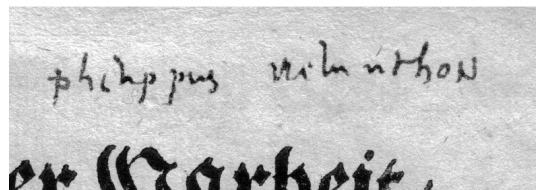 philippus Melanthon
er Warheit.